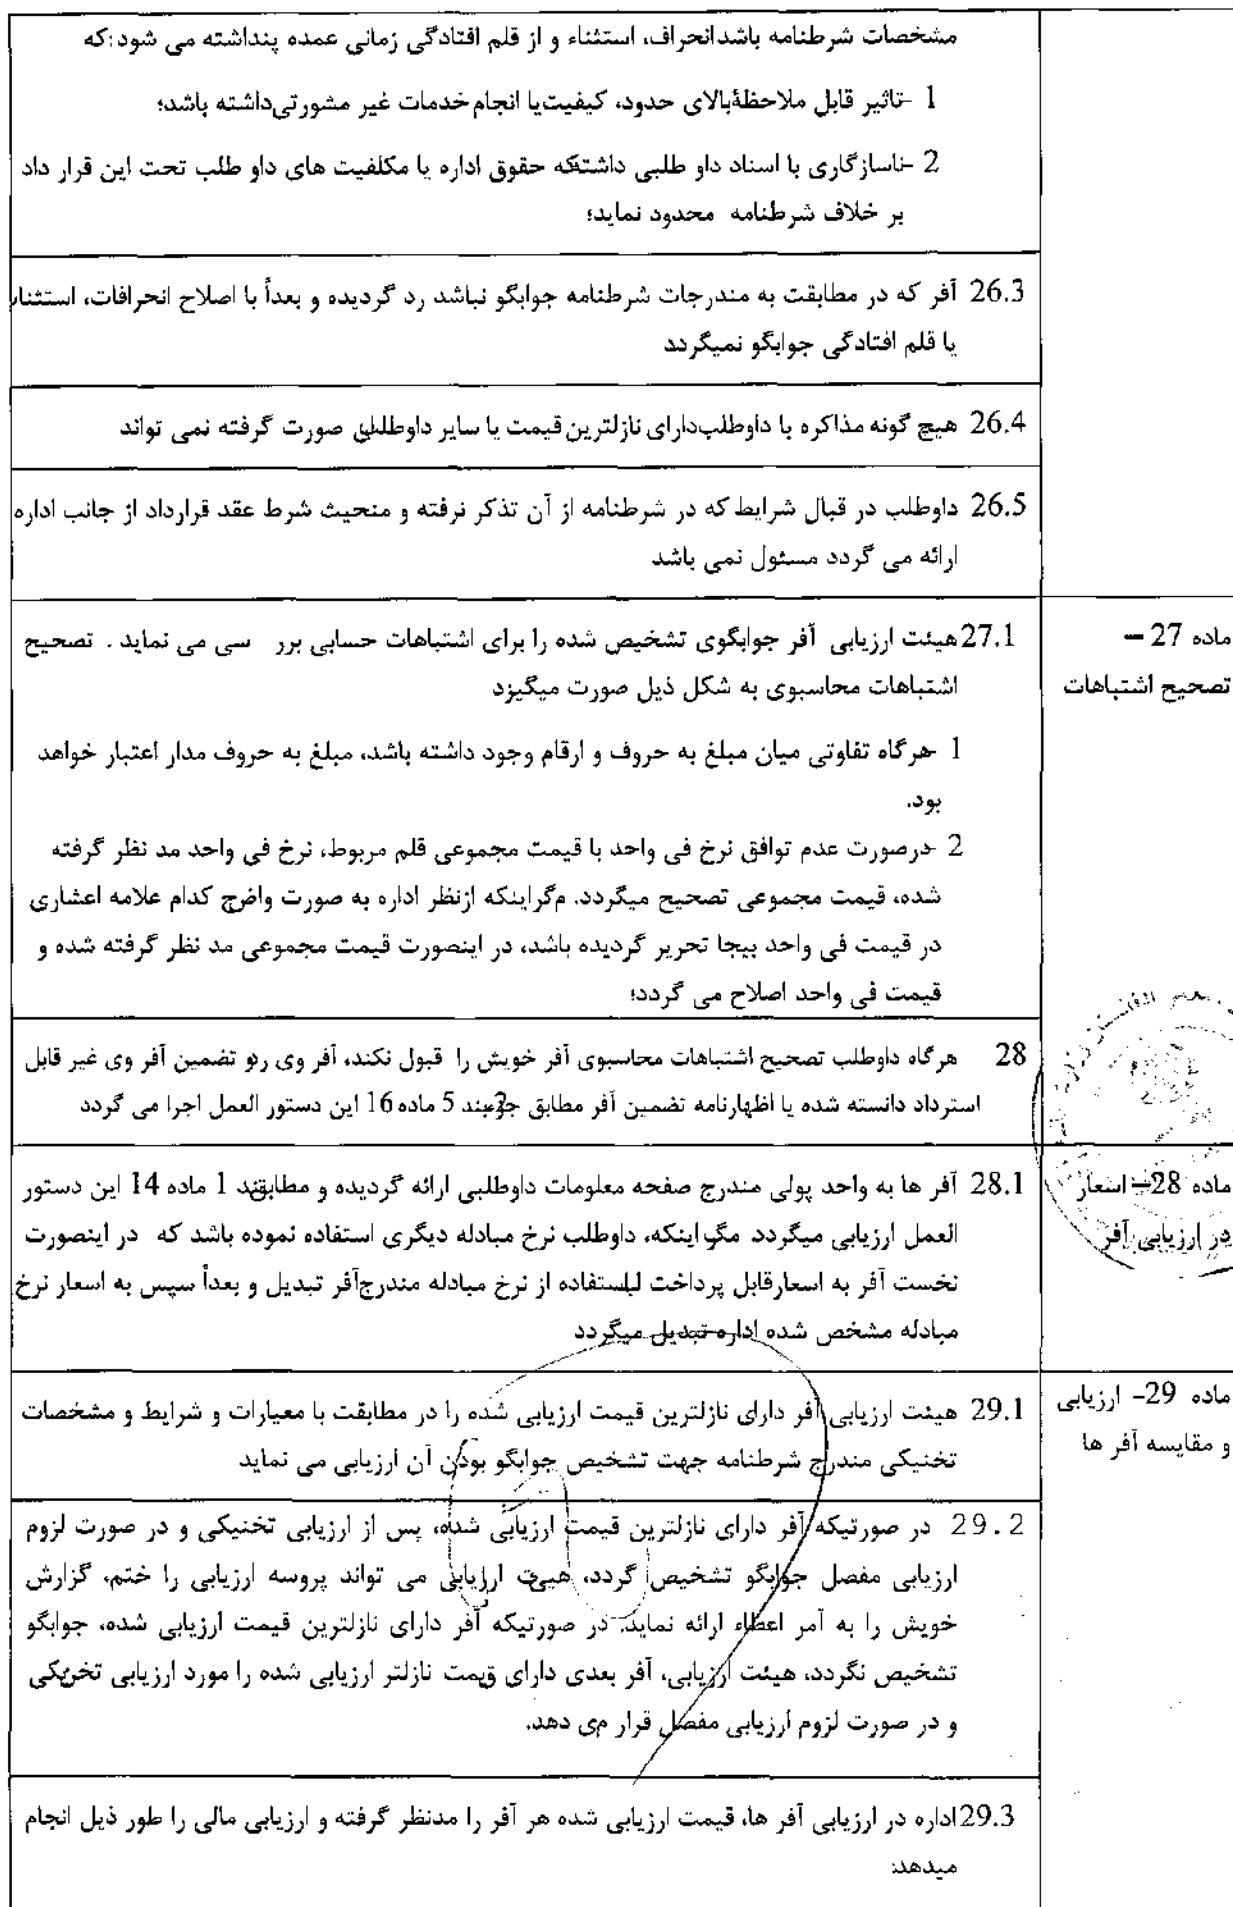 مشخصات شرطنامه باشدانحراف، استثناء و از قلم افتادگی زمانی عمده پنداشته می شود:که
1 -تاثیر قابل ملاحظۀبالای حدود، کیفیت‌یا انجام خدمات غیر مشورتی‌داشته باشد؛
2 -ناسازگاری با اسناد داو طلبی داشته‌که حقوق اداره یا مکلفیت های داو طلب تحت این قرار داد
بر خلاف شرطنامه محدود نماید؛
26.3 آفر که در مطابقت به مندرجات شرطنامه جوابگو نباشد رد گردیده و بعداً با اصلاح انحرافات، استثنا،
یا قلم افتادگی جوابگو نمیگردد
26.4 هیچ گونه مذاکره با داوطلب‌دارای نازلترین قیمت یا سایر داوطلبان صورت گرفته نمی تواند
26.5 داوطلب در قبال شرایط که در شرطنامه از آن تذکر نرفته و منحیث شرط عقد قرارداد از جانب اداره
ارائه می گردد مسئول نمی باشد
ماده 27 –
تصحیح اشتباهات
27.1 هیئت ارزیابی آفر جوابگوی تشخیص شده را برای اشتباهات حسابی برر سی می نماید . تصحیح
اشتباهات محاسبوی به شکل ذیل صورت میگیزد
1 -هرگاه تفاوتی میان مبلغ به حروف و ارقام وجود داشته باشد، مبلغ به حروف مدار اعتبار خواهد
بود.
2 -درصورت عدم توافق نرخ فی واحد با قیمت مجموعی قلم مربوط، نرخ فی واحد مد نظر گرفته
شده، قیمت مجموعی تصحیح میگردد. مگراینکه ازنظر اداره به صورت واضح کدام علامه اعشاری
در قیمت فی واحد بیجا تحریر گردیده باشد، در اینصورت قیمت مجموعی مد نظر گرفته شده و
قیمت فی واحد اصلاح می گردد؛
28 هرگاه داوطلب تصحیح اشتباهات محاسبوی آفر خویش را قبول نکند، آفر وی رد و تضمین آفر وی غیر قابل
استرداد دانسته شده یا اظهارنامه تضمین آفر مطابق جز2 بند 5 ماده 16 این دستور العمل اجرا می گردد
ماده 28– اسعار
در ارزیابی آفر
28.1 آفر ها به واحد پولی مندرج صفحه معلومات داوطلبی ارائه گردیده و مطابق بند 1 ماده 14 این دستور
العمل ارزیابی میگردد. مگر اینکه، داوطلب نرخ مبادله دیگری استفاده نموده باشد که در اینصورت
نخست آفر به اسعارقابل پرداخت با استفاده از نرخ مبادله مندرج‌آفر تبدیل و بعداً سپس به اسعار نرخ
مبادله مشخص شده اداره تبدیل میگردد
ماده 29- ارزیابی
و مقایسه آفر ها
29.1 هیئت ارزیابی آفر دارای نازلترین قیمت ارزیابی شده را در مطابقت با معیارات و شرایط و مشخصات
تخنیکی مندرج شرطنامه جهت تشخیص جوابگو بودن آن ارزیابی می نماید
29.2 در صورتیکه آفر دارای نازلترین قیمت ارزیابی شده، پس از ارزیابی تخنیکی و در صورت لزوم
ارزیابی مفصل جوابگو تشخیص گردد، هیئت ارزیابی می تواند پروسه ارزیابی را ختم، گزارش
خویش را به آمر اعطاء ارائه نماید. در صورتیکه آفر دارای نازلترین قیمت ارزیابی شده، جوابگو
تشخیص نگردد، هیئت ارزیابی، آفر بعدی دارای قیمت نازلتر ارزیابی شده را مورد ارزیابی تخنیکی
و در صورت لزوم ارزیابی مفصل قرار می دهد.
29.3 اداره در ارزیابی آفر ها، قیمت ارزیابی شده هر آفر را مدنظر گرفته و ارزیابی مالی را طور ذیل انجام
میدهد: